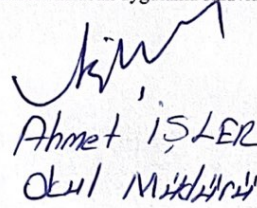 Ahmet İŞLER
Okul Müdürü